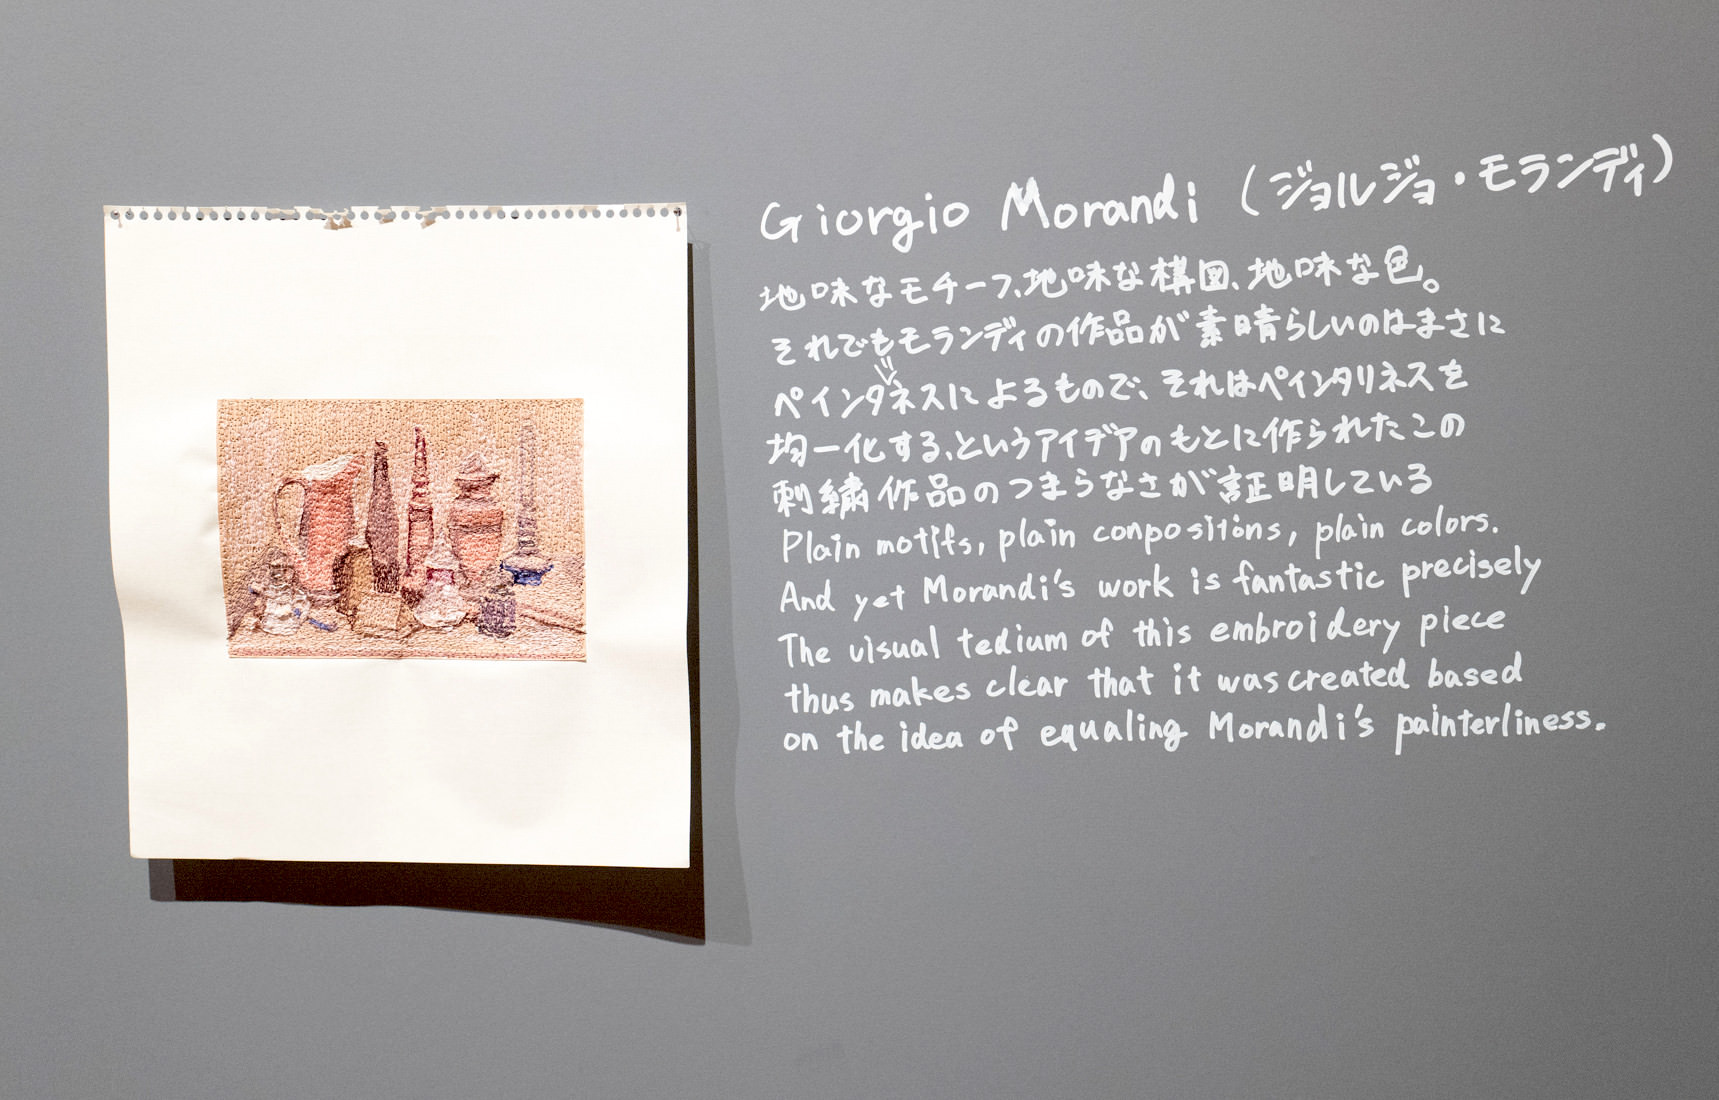 Giorgio Morandi (ジョルジョ・モランディ)
地味なモチーフ、地味な構図、地味な色。
それでもモランディの作品が素晴らしいのはまさに
ペインタリネスによるもので、それはペインタリネスを
均一化する、というアイデアのもとに作られたこの
刺繍作品のつまらなさが証明している
Plain motifs, plain conpositions, plain colors.
And yet Morandi's work is fantastic precisely
The visual tedium of this embroidery piece
thus makes clear that it was created based
on the idea of equaling Morandi's painterliness.